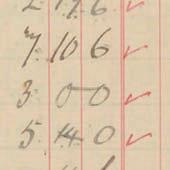 2 17 6 ✓
7 10 6 ✓
3 0 0 ✓
5 14 0 ✓